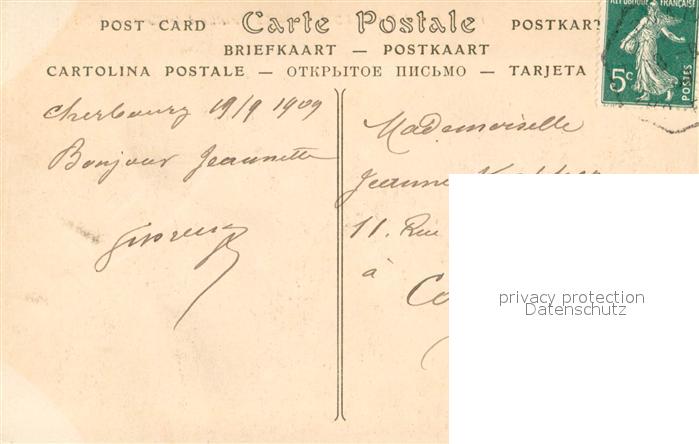 POST CARD Carte Postale POSTKAR
BRIEFKAART — POSTKAART
CARTOLINA POSTALE — ОТКРЫТОЕ ПИСЬМО — TARJETA
RÉPUBLIQUE FRANÇAISE
5c
POSTES
Cherbourg 19/9 1909
Bonjour Jeannette
Mademoiselle
Jeanne
11. Rue
à
Co
privacy protection
Datenschutz